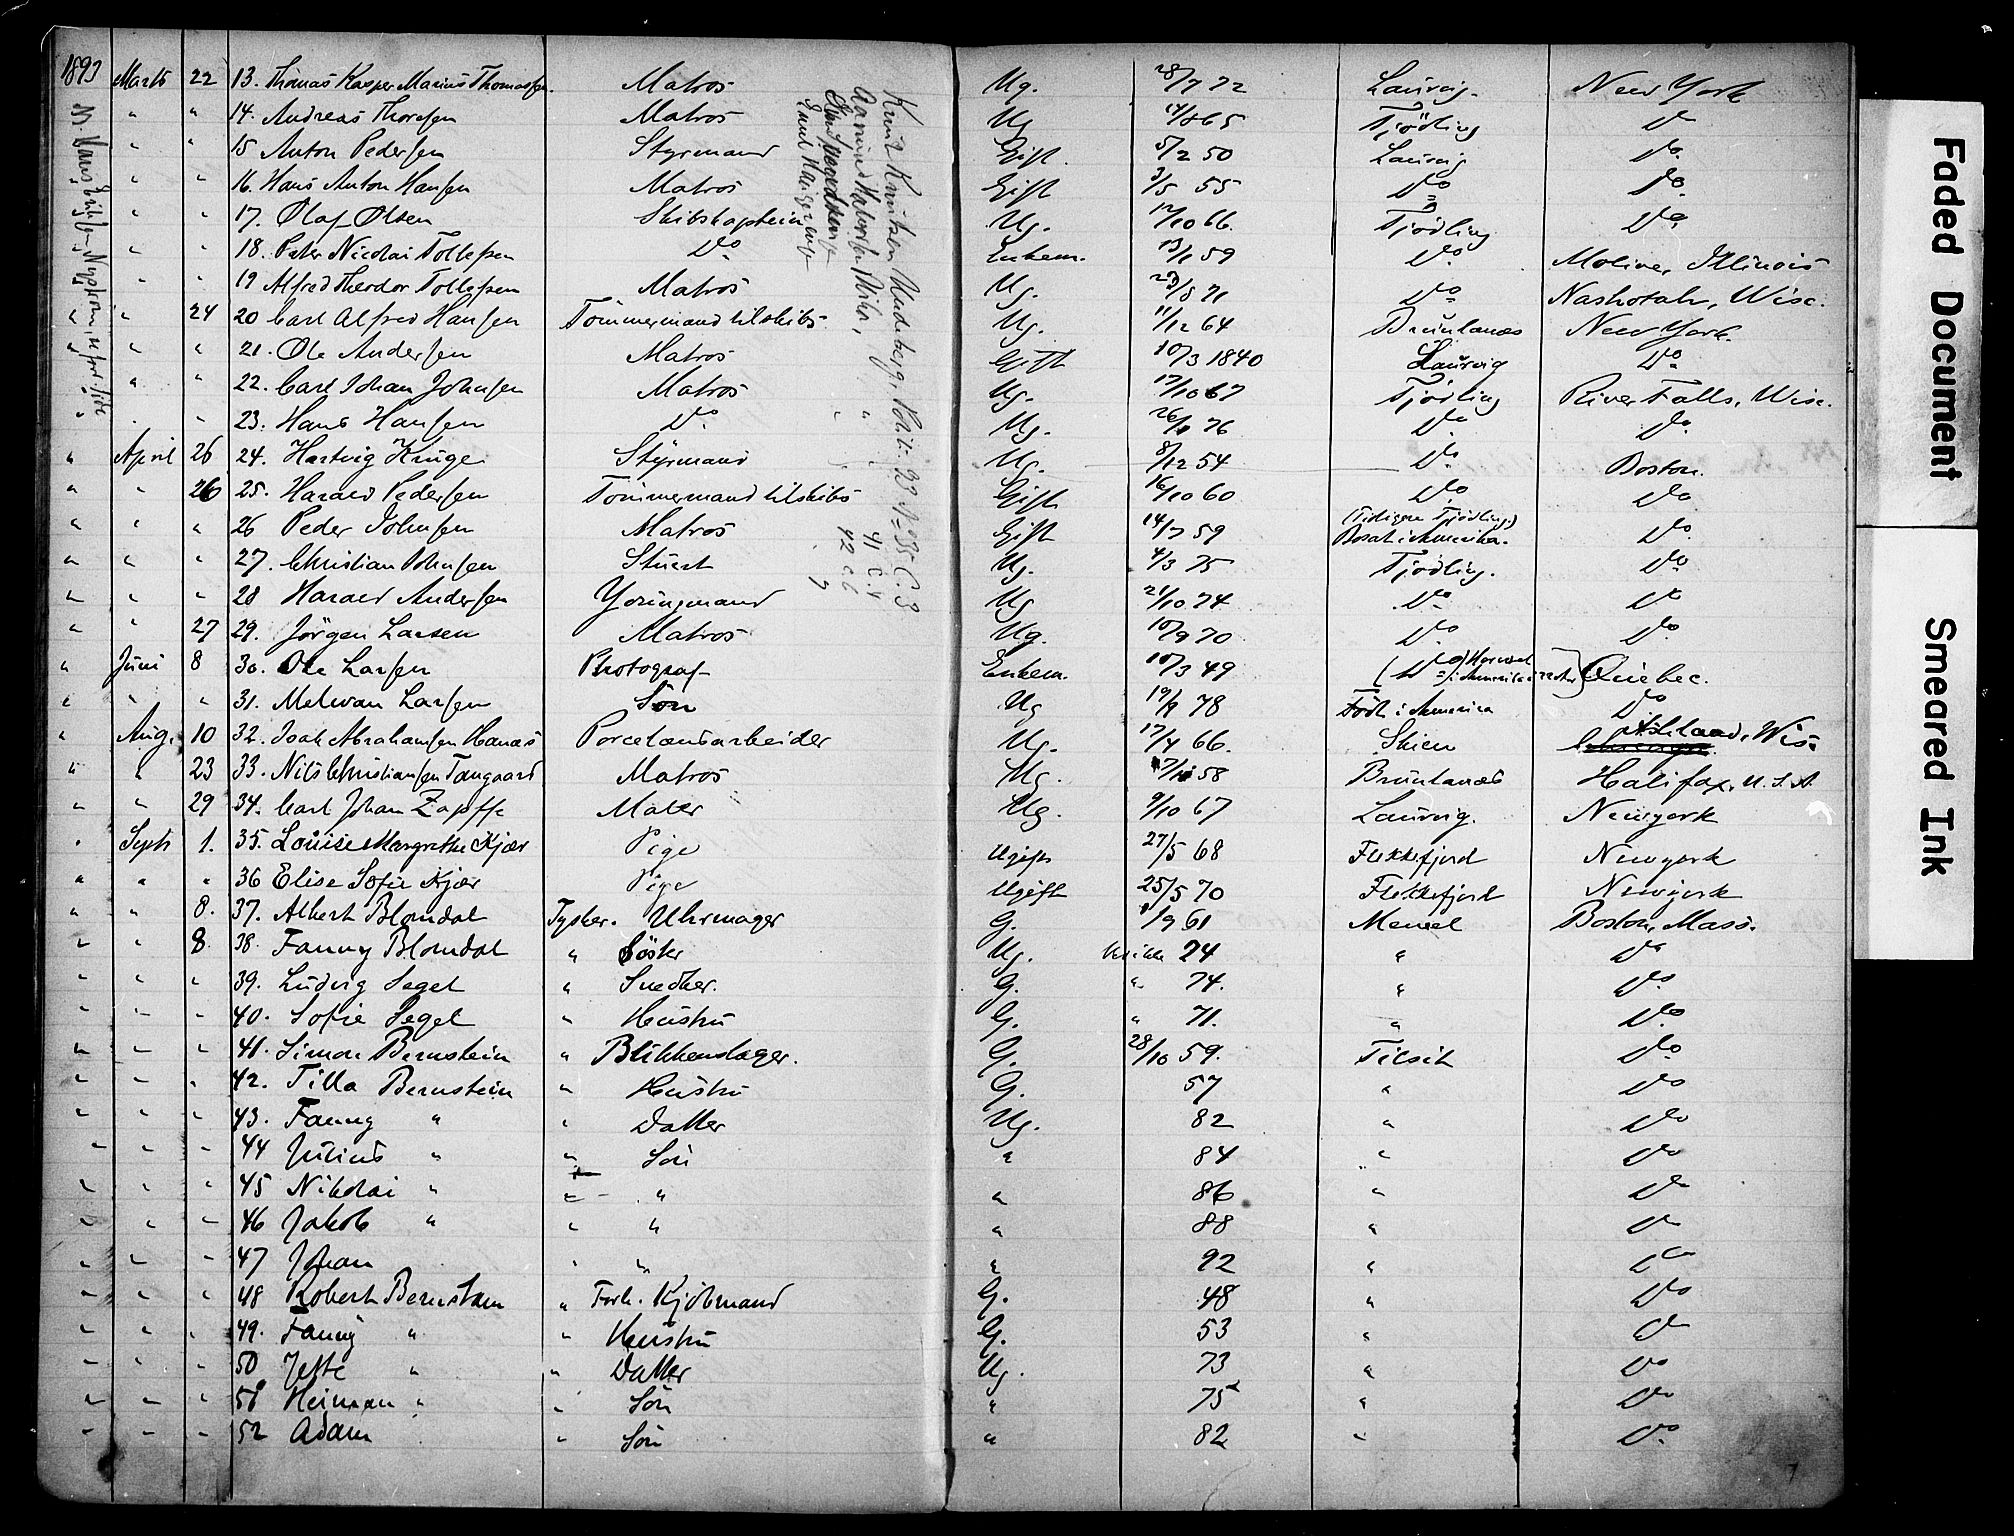 1893 Marts 22 13. Thomas Kasper Marius Thomassen. Matros Ug. 28/7 72 Laurvig. New York
" " 14. Andreas Thoresen Matros Ug 14/8 65 Tjödling Do
" " 15 Anton Pedersen Styrmand Gift. 5/2 50 Laurvig Do.
" " 16. Hans Anton Hansen Matros Gift 3/5 55 Do Do.
" " 17. Olaf Olsen Skibskaptein Ug. 17/10 66. Tjödling Do
" " 18. Peter Nicolai Tollefsen Do. Enkem. 13/1 59 Do. Moline, Illinois
" " 19 Alfred Theodor Tollefsen Matros Ug. 23/8 71 Do Nashotah, Wisc.
" " 24 20 Carl Alfred Hansen Tömmermand tilskibs Ug. 11/12 64 Brunlanæs New York.
" " " 21. Ole Andersen Matros Gift 10/3 1840 Laurvig Do
" " 22. Carl Johan Johnsen Matros Ug. 17/10 67 Tjödling River Falls, Wisc.
" " 23. Hans Hansen Do. Ug. 26/1 76 Do. Do.
" April 26 24. Hartvig Kruge Styrmand Ug. 8/12 54 Do Boston.
" " 26 25. Harald Pedersen Tömmermand tilskibs Gift 16/10 60 Do Do
" " " 26 Peder Johnsen Matros Gift 14/7 59 (Tidligere Tjödling.) Bosat i Amerika. Do.
" " " 27. Christian Johnsen Stuert Ug. 4/3 75 Tjödling. Do
" " " 28 Harald Andersen Yongmand Ug 21/10 74 Do Do
" " 27 29. Jörgen Larsen Matros Ug. 10/9 70 Do. Do.
" Juni 8 30. Ole Larsen Photograf Enkem. 10/3 49 (Do) Quebec.
" " " 31. Melvan Larsen Sön Ug 19/9 78 Födt i America Do
" Aug. 10 32. Isak Abrahamsen Hanaes Porcelænsarbeider Ug. 17/4 66. Skien Ashland, Wis
" " 23 33. Nils Christiansen Tangaard Matros Ug. 58 Brunlanæs Halifax, U. S. A.
" " 29 34. Carl Johan Zapffe Maler Ug. 9/10 67 Laurvig. Newyork
" Septs 1. 35. Louise Margrethe Kjær Pige Ugift 27/5 68 Flekkefjord Newyork
" " " 36 Elise Sofie Kjær Pige Ugift 25/5 70 Flekkefjord Newyork
" " 8. 37. Albert Blomdal Tysker. Uhrmager G. 1/9 61 Memel Boston, Mass.
" " 8 38. Fanny Blomdal " Söster Ug. 24 " Do
" " " 39. Ludvig Segel " Snedker. G. " 74. " Do.
" " " 40. Sofie Segel " Hustru G. " 71. " Do.
" " " 41. Simon Bernstein " Blikkenslager. G. 28/10 59. Tilsit Do
" " " 42. Tilla Bernstein " Hustru G. 57 " Do
" " " 43. Fanny " " Datter Ug. 82 " Do
" " " 44 Julius " " Sön " 84 " Do
" " " 45 Nikolai " " " " 86 " Do
" " " 46 Jakob " " " " 88 " Do
" " " 47 Johan " " " 92 " Do
" " " 48 Robert Bernstein " Forh. Kjöbmand G. 48 " Do
" " " 49. Fanny " " Hustru G. 53 " Do
" " " 50 Jette " " Datter Ug. 73 " Do
" " " 51 Heiman " " Sön " 75 " Do
" " " 52 Adam " " Sön " 82 " Do.
Hans Eriksen Nystrøm
Knut Knutsen Underberg. Polit: 23 No 35 C. 3
41 C. 4
42 C. 6
Faded Document
Smeared Ink